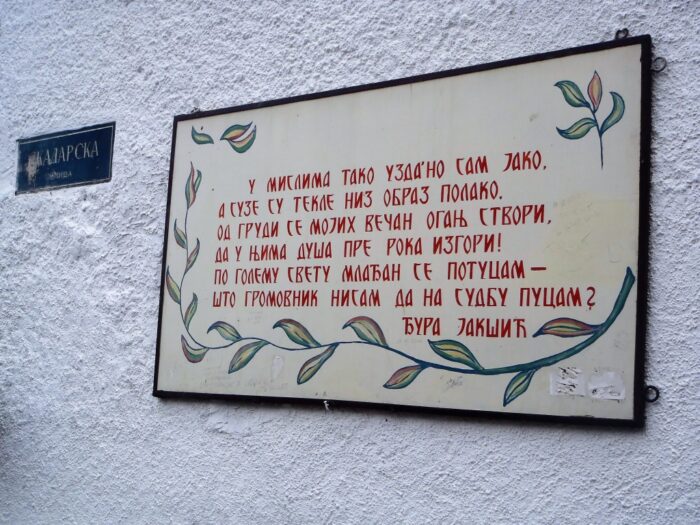 СКАДАРСКА
УЛИЦА
У МИСЛИМА ТАКО УЗДА'НО САМ ЈАКО,
А СУЗЕ СУ ТЕКЛЕ НИЗ ОБРАЗ ПОЛАКО.
ОД ГРУДИ СЕ МОЈИХ ВЕЧАН ОГАЊ СТВОРИ,
ДА У ЊИМА ДУША ПРЕ РОКА ИЗГОРИ!
ПО ГОЛЕМУ СВЕТУ МЛАЂАН СЕ ПОТУЦАМ —
ШТО ГРОМОВНИК НИСАМ ДА НА СУДБУ ПУЦАМ?
ЂУРА ЈАКШИЋ